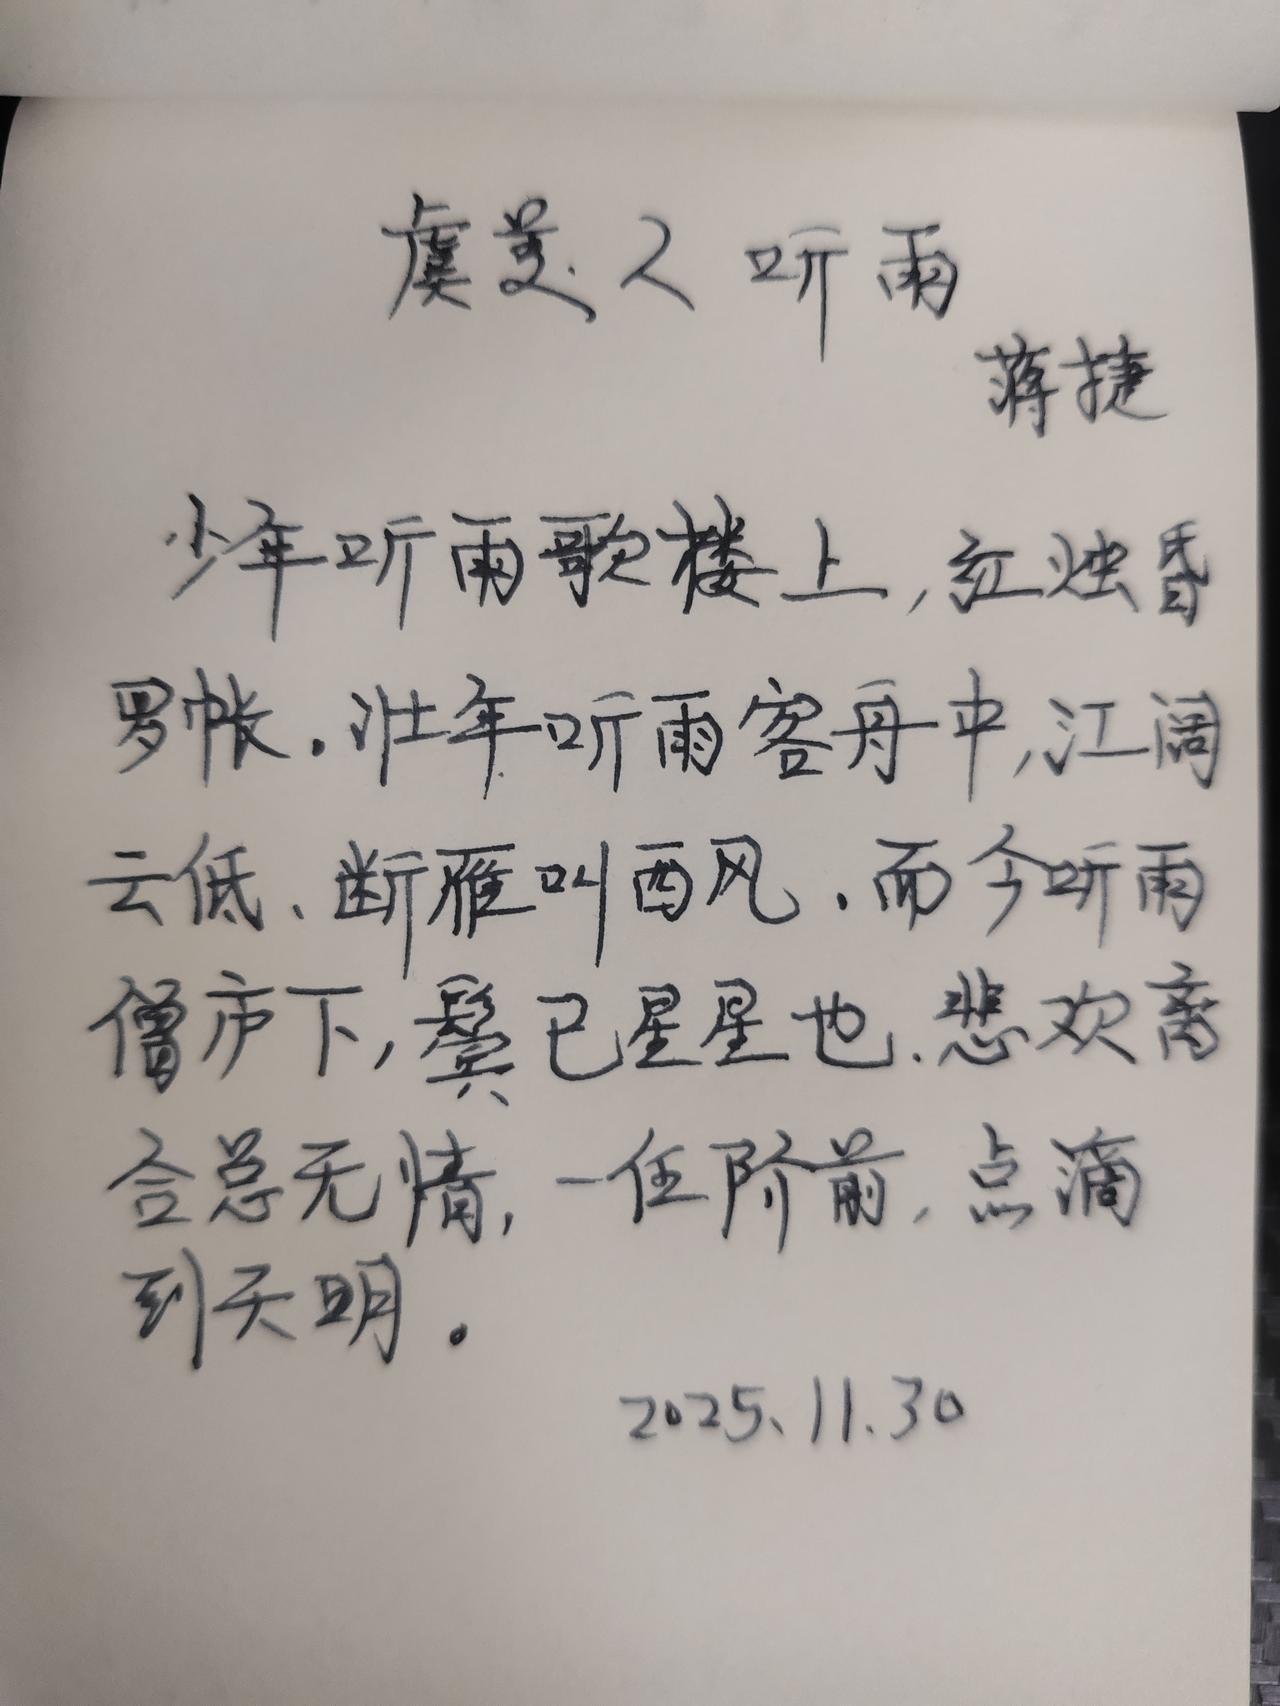 虞美人 听雨
蒋捷
少年听雨歌楼上,红烛昏
罗帐.壮年听雨客舟中,江阔
云低、断雁叫西风.而今听雨
僧庐下,鬓已星星也.悲欢离
合总无情,一任阶前,点滴
到天明。
2025.11.30